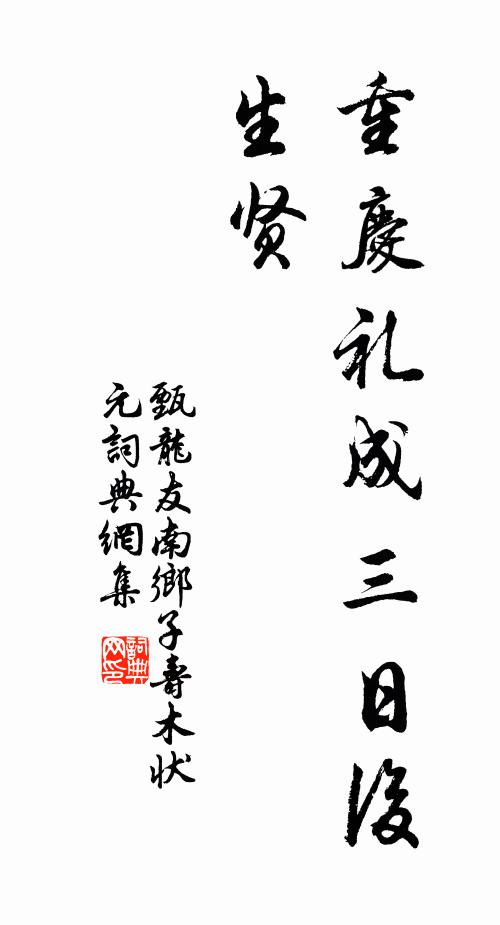 重慶礼成三日後
生贤
甄龍友南鄉子壽木状
元詞典網集
詞典网印